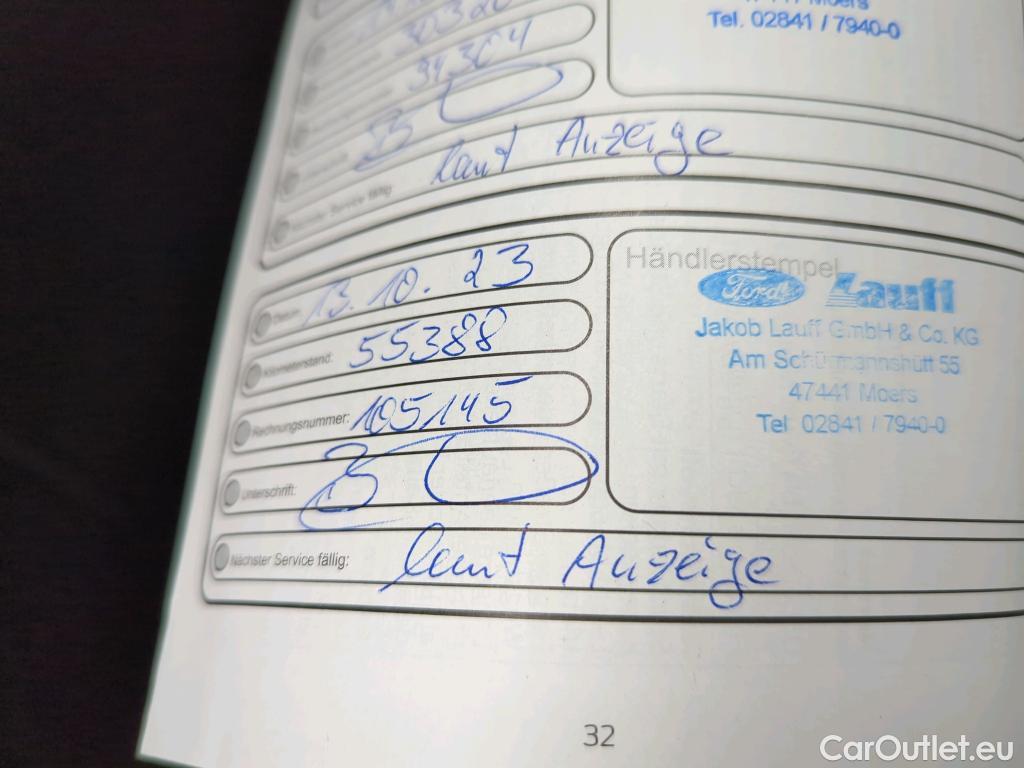 Tel. 02841 / 7940-0
Nächster Service fällig: laut Anzeige
Datum: 13.10.23
Kilometerstand: 55388
Rechnungsnummer: 105145
Unterschrift:
Nächster Service fällig: laut Anzeige
Händlerstempel
Ford Lauff
Jakob Lauff GmbH & Co. KG
Am Schürmannshütt 55
47441 Moers
Tel 02841 / 7940-0
32
CarOutlet.eu